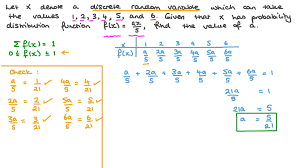 Let x denote a discrete random variable which can take
the values 1, 2, 3, 4, 5, and 6. Given that x has probability
distribution function f(x) = ax/5, find the value of a.
Σ f(x) = 1
0 ≤ f(x) ≤ 1 ←
x 1 2 3 4 5 6
f(x) a/5 2a/5 3a/5 4a/5 5a/5 6a/5
check:
a/5 = 1/21 ✓ 4a/5 = 4/21 ✓
2a/5 = 2/21 ✓ 5a/5 = 5/21 ✓
3a/5 = 3/21 ✓ 6a/5 = 6/21 ✓
a/5 + 2a/5 + 3a/5 + 4a/5 + 5a/5 + 6a/5 = 1
21a/5 = 1
21a = 5
a = 5/21